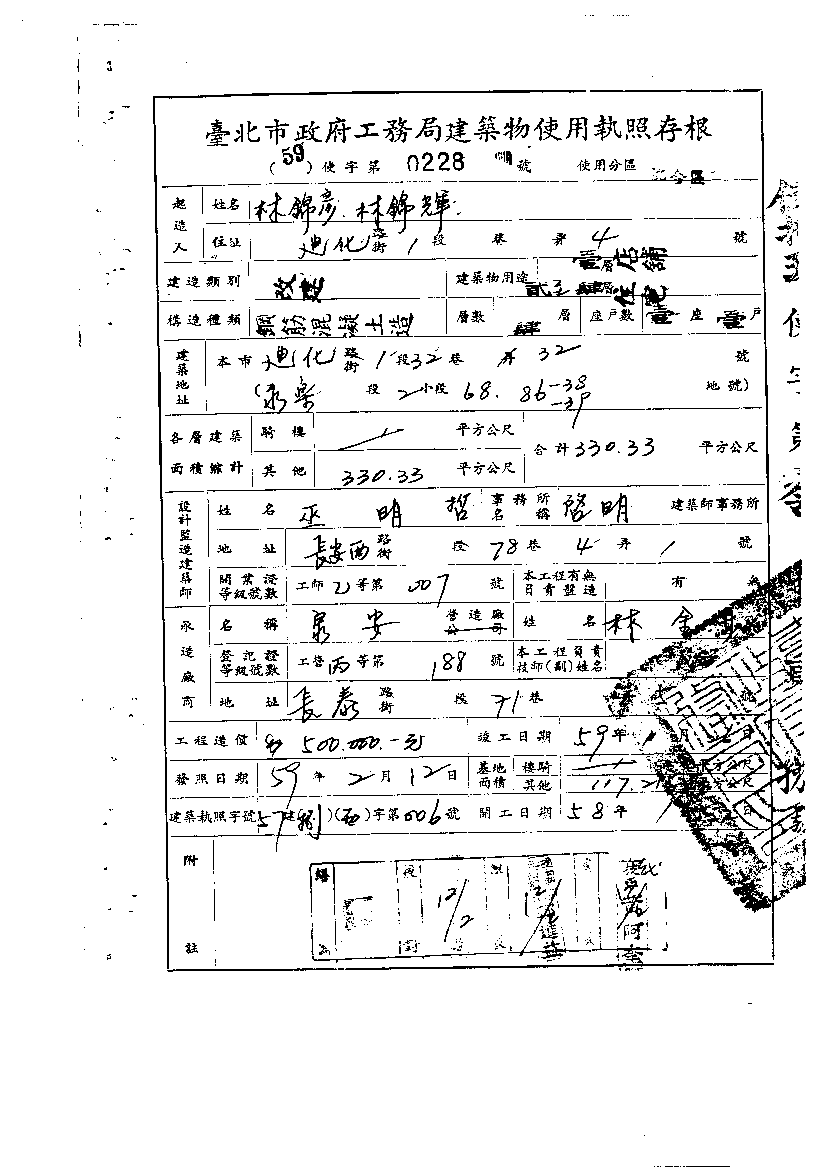 臺北市政府工務局建築物使用執照存根
(59)使字第 0228 號 使用分區
起造人 姓名 林錦彥.林錦輝.
住址 迪化路街 1段 巷 弄 4 號
建造類別 改建 建築物用途 壹層店舖 貳至肆層住宅
構造種類 鋼筋混凝土造 層數 肆 層 座戶數 壹 座 壹 戶
建築地址 本市 迪化路街 1段 32巷 弄 32 號
(永樂 段 2小段 68. 86-38 -39 地號)
各層建築面積總計 騎樓 / 平方公尺 合計 330.33 平方公尺
其他 330.33 平方公尺
設計監造建築師 姓名 巫明哲 事務所名稱 啓明 建築師事務所
地址 長安西路街 段 78巷 4弄 1號
開業證等級號數 工師乙等第 007 號 本工程有無負責監造 有 無
承造廠商 名稱 泉安 營造廠公司 姓名 林金
登記證等級號數 工營丙等第 188 號 本工程負責技師(副)姓名
地址 長泰路街 段 71巷 號
工程造價 500.000.-元 竣工日期 59年 1月 日
發照日期 59年 2月 12日 基地面積 騎樓 平方公尺
其他 117.21 平方公尺
建築執照字號 57 字第 006 號 開工日期 58年 日
附註
繕 校對 12/2 12/